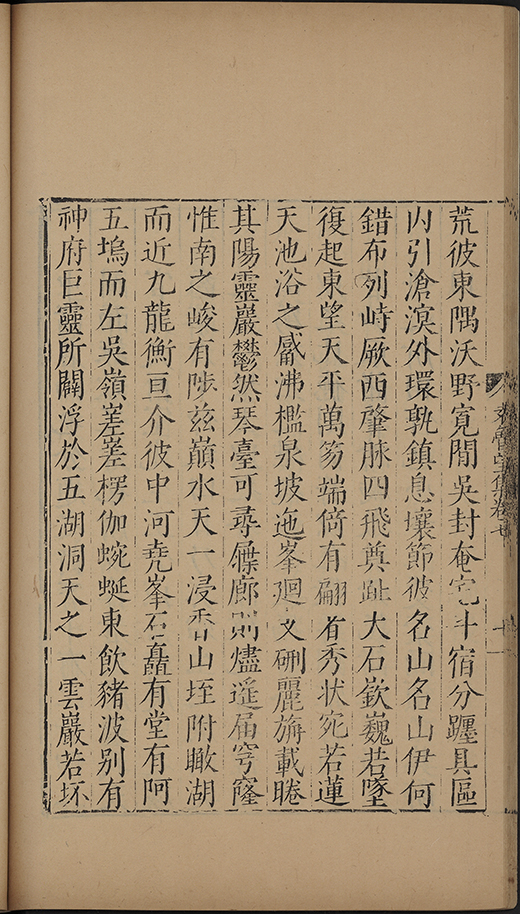 荒彼東隅沃野寬閒吳封奄宅斗宿分躔具區
內引滄溟外環孰鎮息壤節彼名山名山伊何
錯布列峙厥西肇脉四飛奠趾大石嶔巍若墜
復起東望天平萬笏端倚有翩者秀狀宛若蓮
天池浴之觱沸檻泉坡迤峯迴文硎麗旃載睠
其陽靈巖欝然琴臺可尋屧廊則燼遥届穹窿
惟南之峻有陟兹巔水天一浸香山垤附瞰湖
而近九龍衡亘介彼中河堯峯石矗有堂有阿
五塢而左吳嶺差差楞伽蜿蜒東飲豬波别有
神府巨靈所闢浮於五湖洞天之一雲巖若坏